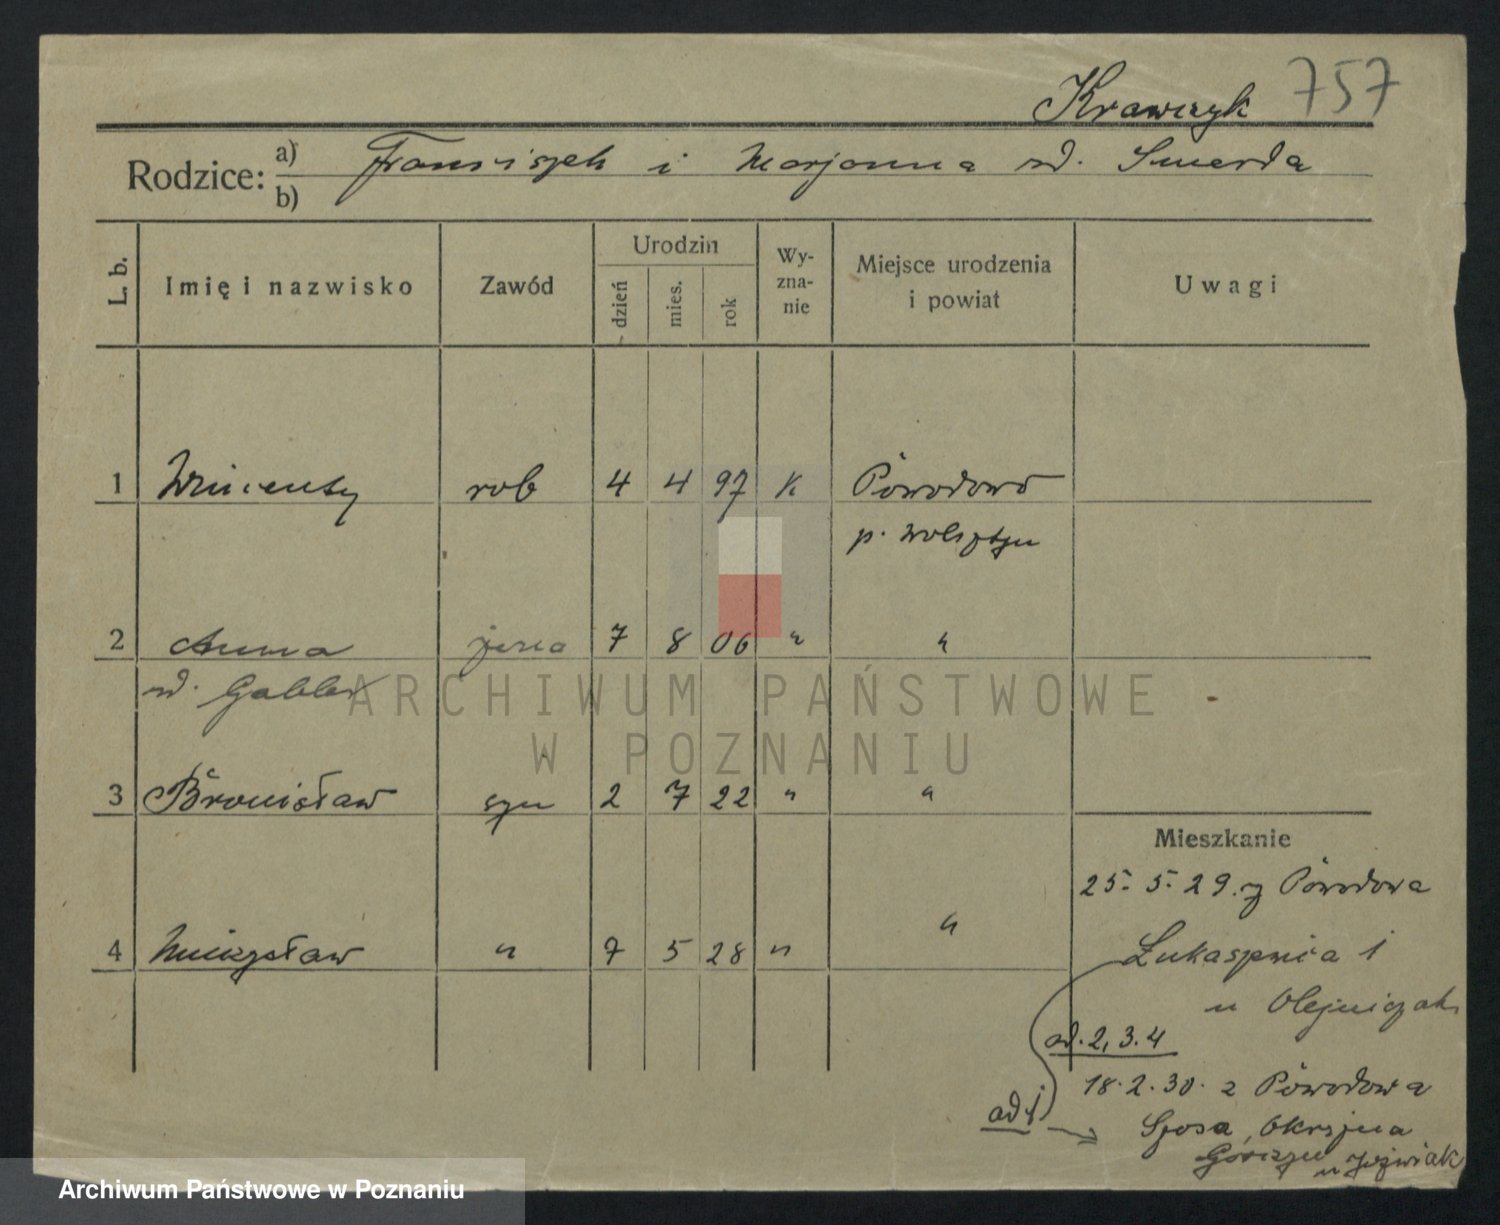 Krawczyk 757
Rodzice: a) Franciszek i Marjanna rd. Smerda
b)
L. b. Imię i nazwisko Zawód Urodzin dzień mies. rok Wyznanie Miejsce urodzenia i powiat Uwagi
1 Wincenty rob 4 4 97 K Powodowo
p. Wolsztyn
2 Anna żona 7 8 06 " "
rd. Gabler
3 Bronisław syn 2 7 22 " "
Mieszkanie
25. 5. 29. z Powodowa
4 Mieczysław " 7 5 28 " "
Łukaszewicza 1
u Olejniczak
ad. 2, 3. 4
18. 2. 30. z Powodowa
ad 1
Szosa, Okrężna
Górczyn u Jóźwiak
ARCHIWUM PAŃSTWOWE
W POZNANIU
Archiwum Państwowe w Poznaniu